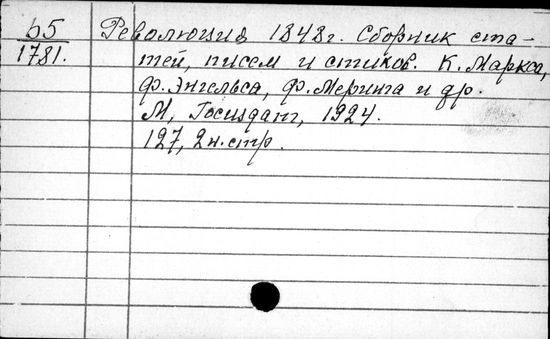 b5
1781.
Революция 1848г. Сборник ста-
тей, писем и стихов. К. Маркса,
Ф. Энгельса, Ф. Меринга и др.
М, Госиздат, 1924.
127, 2н.стр.